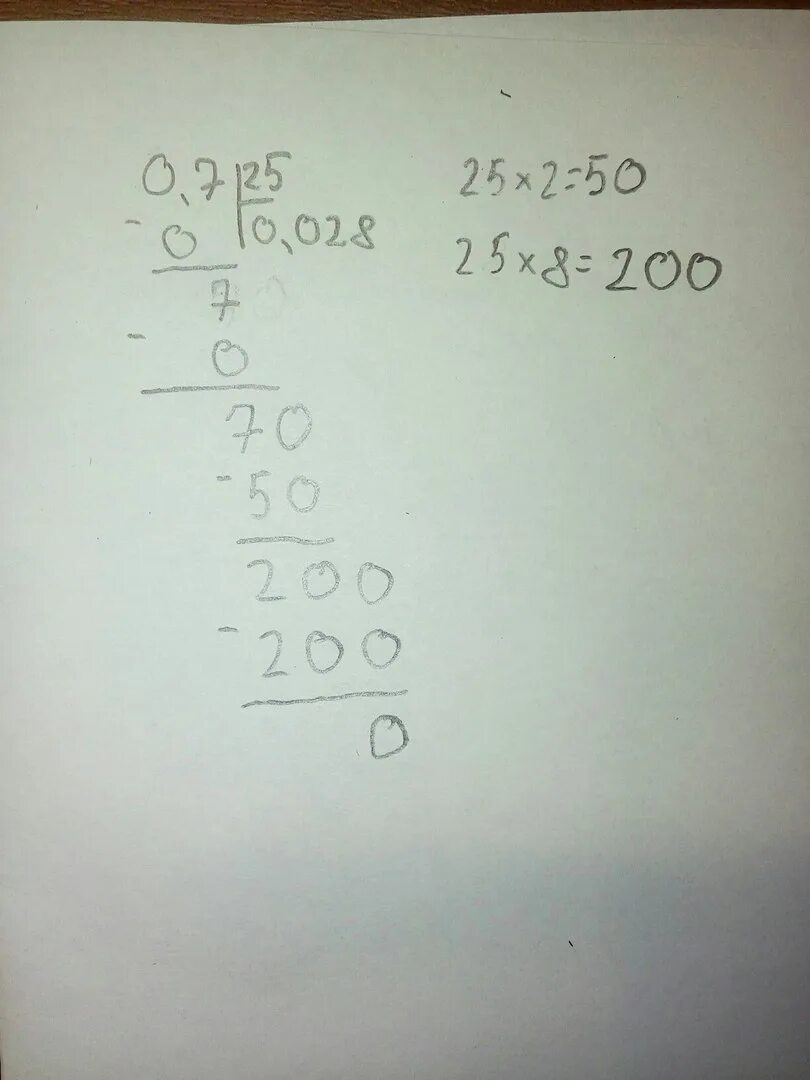 0,7 25
- 0 0,028
7
- 0
70
- 50
200
- 200
0
25×2=50
25×8=200